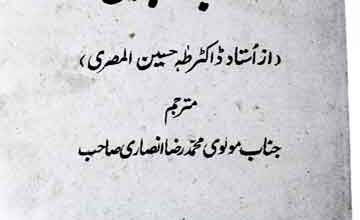 (از اُستاد ڈاکٹر طٰہٰ حسین المصری)
مترجم
جناب مولوی محمد رضا انصاری صاحب